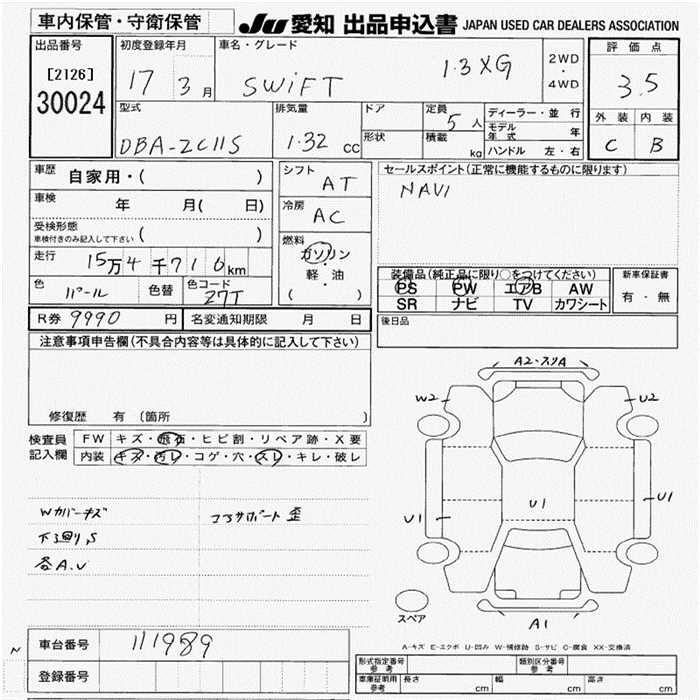 車内保管・守衛保管 JU 愛知 出品申込書 JAPAN USED CAR DEALERS ASSOCIATION
出品番号
[2126]
30024
初度登録年月
17 3月
車名・グレード
SWiFT 1.3XG
2WD
・
4WD
評価点
3.5
外装 内装
C B
型式
DBA-ZC11S
排気量
1.32 cc
ドア
形状
定員
5人
積載
kg
ディーラー・並行
モデル年式 年
ハンドル 左・右
車歴 自家用・( )
車検 年 月( 日)
受検形態
車検付きのみ記入して下さい ( )
走行 15万4千716km
色 パール 色替 色コード Z7T
シフト
AT
冷房
AC
燃料
ガソリン
・
軽・油
( )
セールスポイント(正常に機能するものに限ります)
NAVI
装備品(純正品に限り○をつけてください)
PS PW エアB AW
SR ナビ TV カワシート
新車保証書
有・無
R券 9990 円 名変通知期限 月 日
後日品
注意事項申告欄(不具合内容等は具体的に記入して下さい)
修復歴 有(箇所 )
検査員記入欄
FW キズ・飛石・ヒビ割・リペア跡・X要
内装 キズ・汚レ・コゲ・穴・スレ・キレ・破レ
Wカバーキズ コアサポート歪
下廻り,S
各A.U
A2-スリA
W2 U2
U1 U1 U1
スペア
A1
A-キズ E-エクボ U-凹み W-補修跡 S-サビ C-腐食 XX-交換済
N
車台番号 111989
登録番号
形式指定番号 参考 類別区分番号 参考
車庫証明用 参考 長さ cm 幅 cm 高さ cm